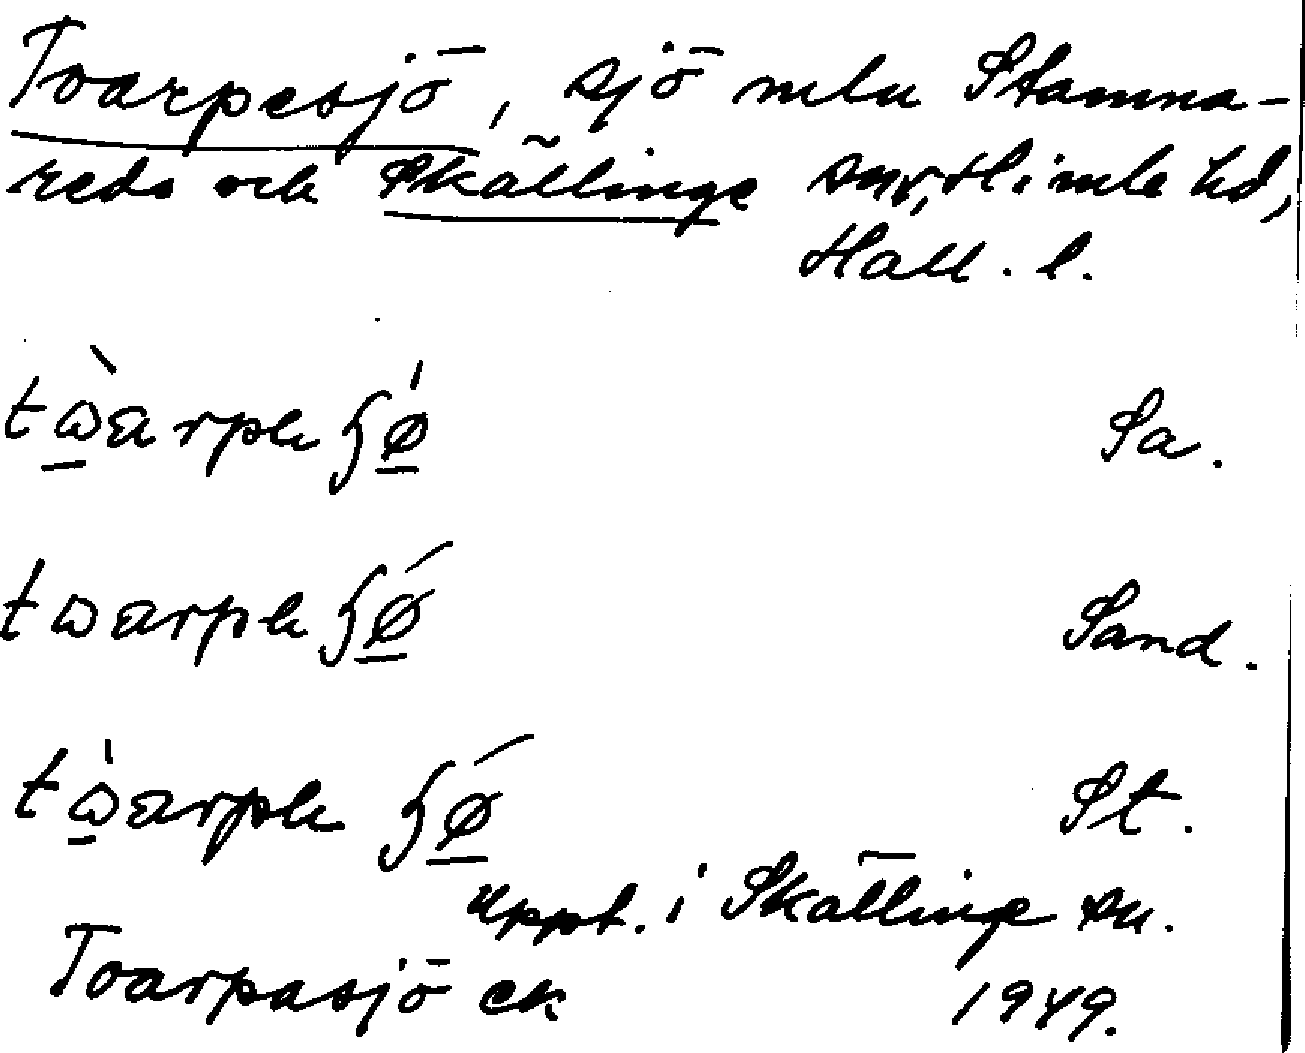 Toarpesjö, sjö mln Stamna-
reds och Skällinge snr, Himle hd,
Hall. l.
tòarpa ʃǿ Sa.
toarpa ʃǿ Sand.
tòarpa ʃǿ St.
uppt. i Skällinge sn.
Toarpasjö ek 1949.